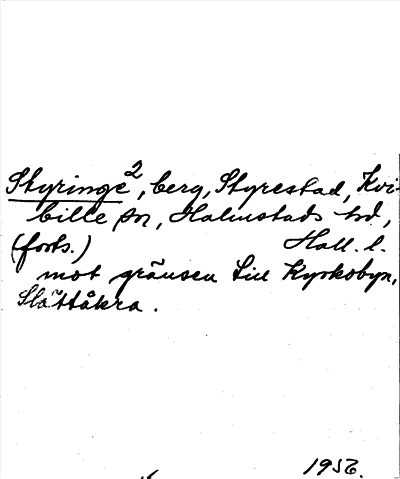 Styringe², berg, Styrestad, Kvi-
bille sn, Halmstads hd,
(forts.) Hall. l.
mot gränsen till Kyrkobyn,
Slättåkra.
1952.